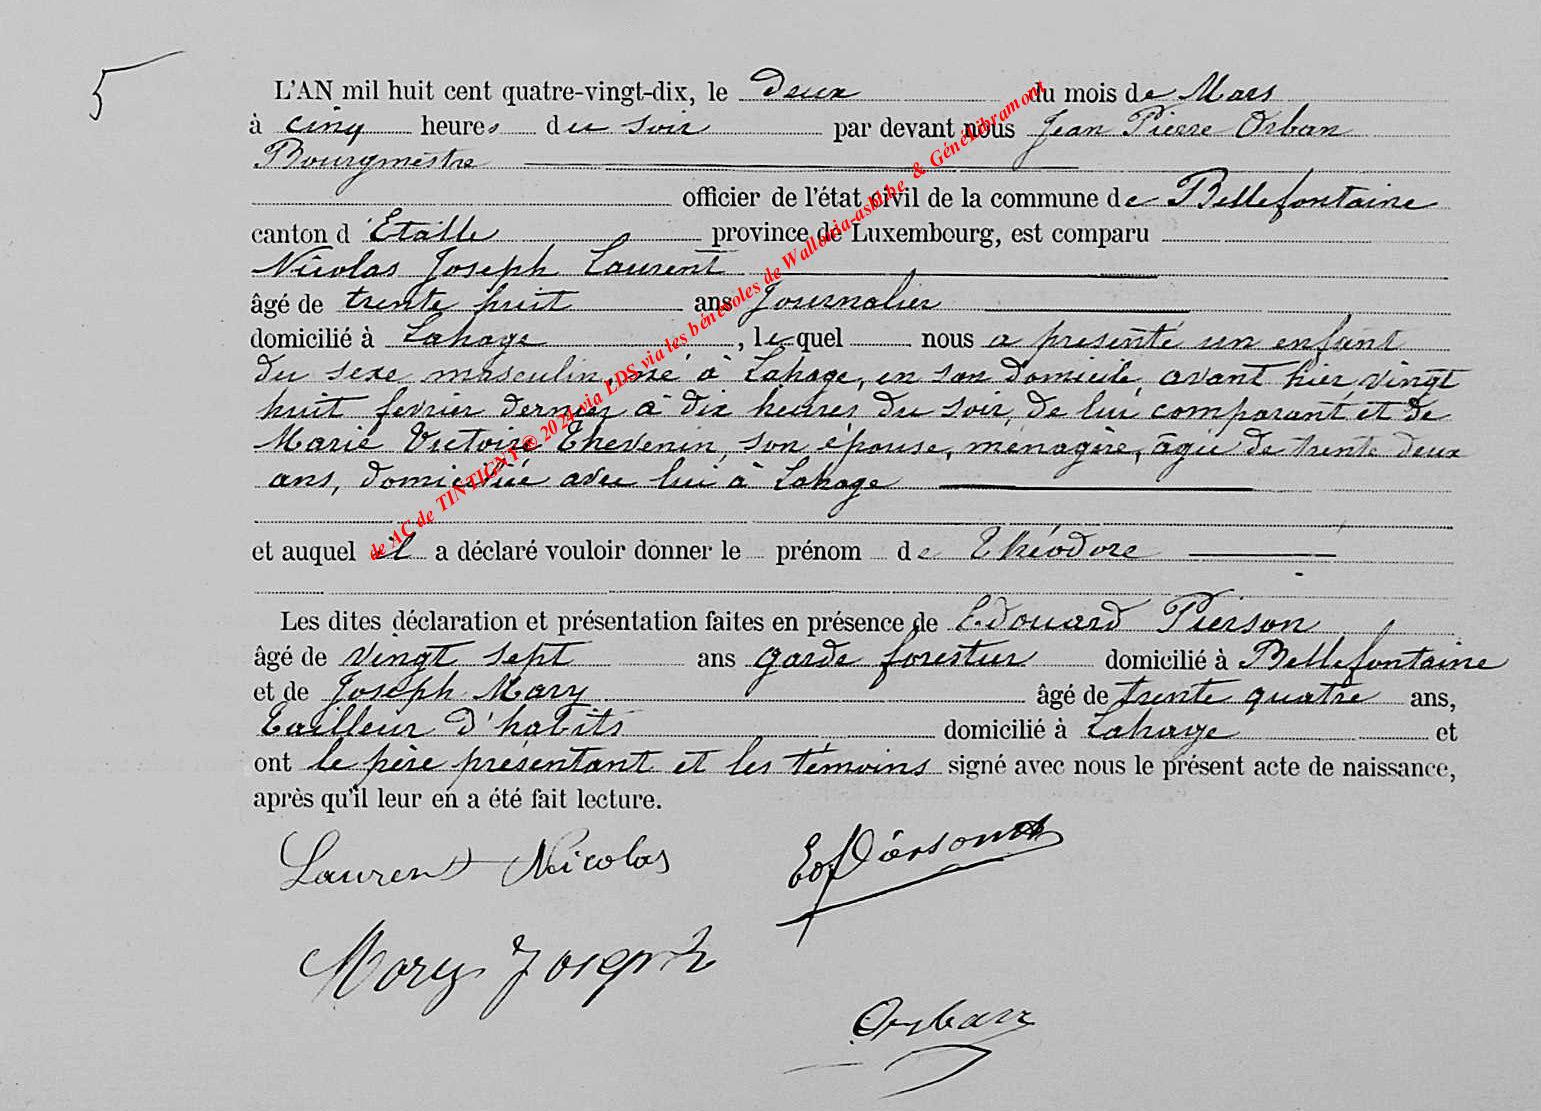 5
L'AN mil huit cent quatre-vingt-dix, le deux du mois de Mars
à cinq heures du soir par devant nous Jean Pierre Orban
Bourgmestre
officier de l'état civil de la commune de Bellefontaine
canton d'Etalle province de Luxembourg, est comparu
Nicolas Joseph Laurent
âgé de trente huit ans Journalier
domicilié à Lahage, lequel nous a présenté un enfant
du sexe masculin, né à Lahage, en son domicile avant hier vingt
huit fevrier dernier à dix heures du soir, de lui comparant et de
Marie Victoire Thevenin, son épouse, ménagère, âgée de trente deux
ans, domiciliée avec lui à Lahage
et auquel il a déclaré vouloir donner le prénom de Théodore
Les dites déclaration et présentation faites en présence de Edouard Pierson
âgé de vingt sept ans garde forestier domicilié à Bellefontaine
et de Joseph Mary âgé de trente quatre ans,
tailleur d'habits domicilié à Lahage et
ont le père présentant et les témoins signé avec nous le présent acte de naissance,
après qu'il leur en a été fait lecture.
Laurent Nicolas
Ed Pierson
Mary Joseph
Orban
de AC de TINTIGNY © 2024 via LDS via les bénévoles de Wallonia-asbl.be & GénéLibramont